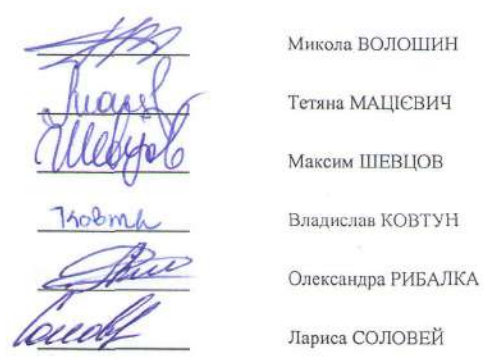 Микола ВОЛОШИН
Тетяна МАЦІЄВИЧ
Шевцов Максим ШЕВЦОВ
Ковтун Владислав КОВТУН
Олександра РИБАЛКА
Лариса СОЛОВЕЙ